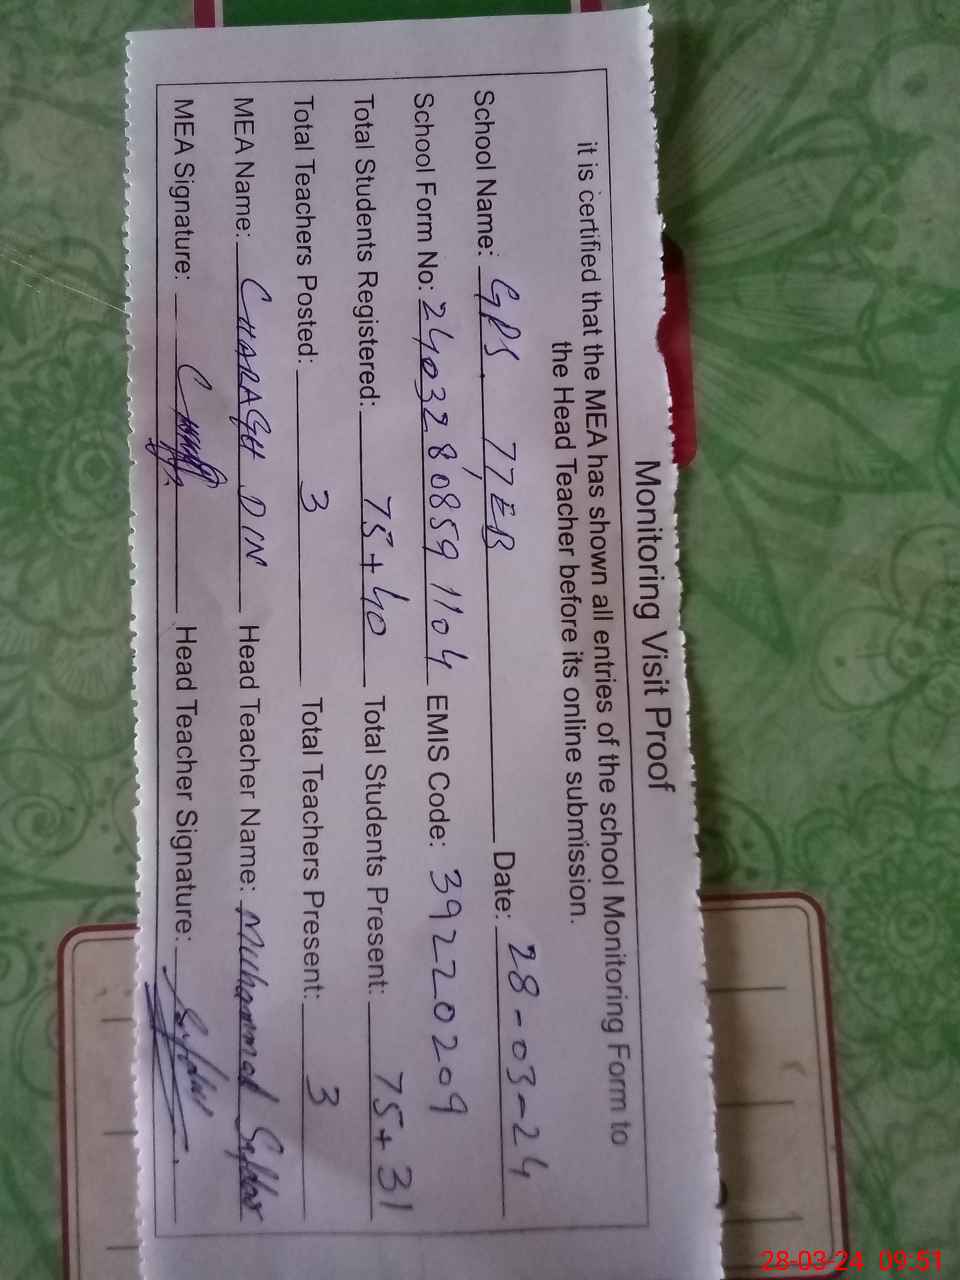 Monitoring Visit Proof
it is certified that the MEA has shown all entries of the school Monitoring Form to
the Head Teacher before its online submission.
School Name: GPS. 77EB Date: 28-03-24
School Form No: 24032808591104 EMIS Code: 39220209
Total Students Registered: 75+40 Total Students Present: 75+31
Total Teachers Posted: 3 Total Teachers Present: 3
MEA Name: CHARAGH DIN Head Teacher Name: Muhammad Safdar
MEA Signature: Head Teacher Signature: Safdar
28-03-24 09:51